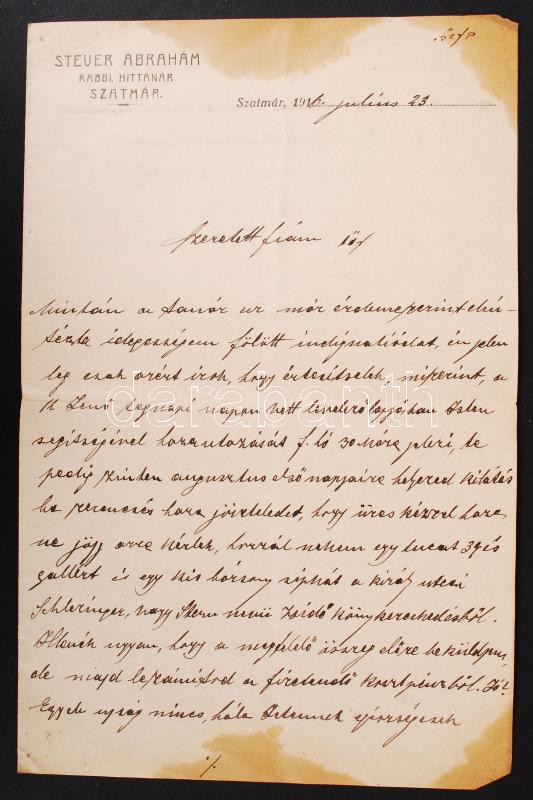 STEUER ÁBRAHÁM
RABBI, HITTANÁR
SZATMÁR.
Szatmár, 1916 julius 23.
Szeretett fiam
Miután a tanár ur már érdemszerint
idegességem fölött indignatiódat, én jelen
leg csak azért irok, hogy értesitselek, miszerint, a
tegnapi napon vett levelezőlapjában Isten
segitségével hazautazását f. hó 30 jelzi, te
pedig szintén augusztus első napjaira helyezed kilátás
ba szerencsés haza jöveteledet, hogy üres kézzel haza
ne jöjj arra kérlek, hozzál nekem egy tucat 39 és
gallért és egy kis bársony sipkát a király utcai
Schlezinger, vagy Stern nevü zsidó könyvkereskedésből.
ugyan, hogy a megfelelő összeg előre beküldjem,
de majd leszámitod a fizetendő kosztpénzből.
Egyéb ujság nincs, hála Istennek egészségesek
./.
darabanth